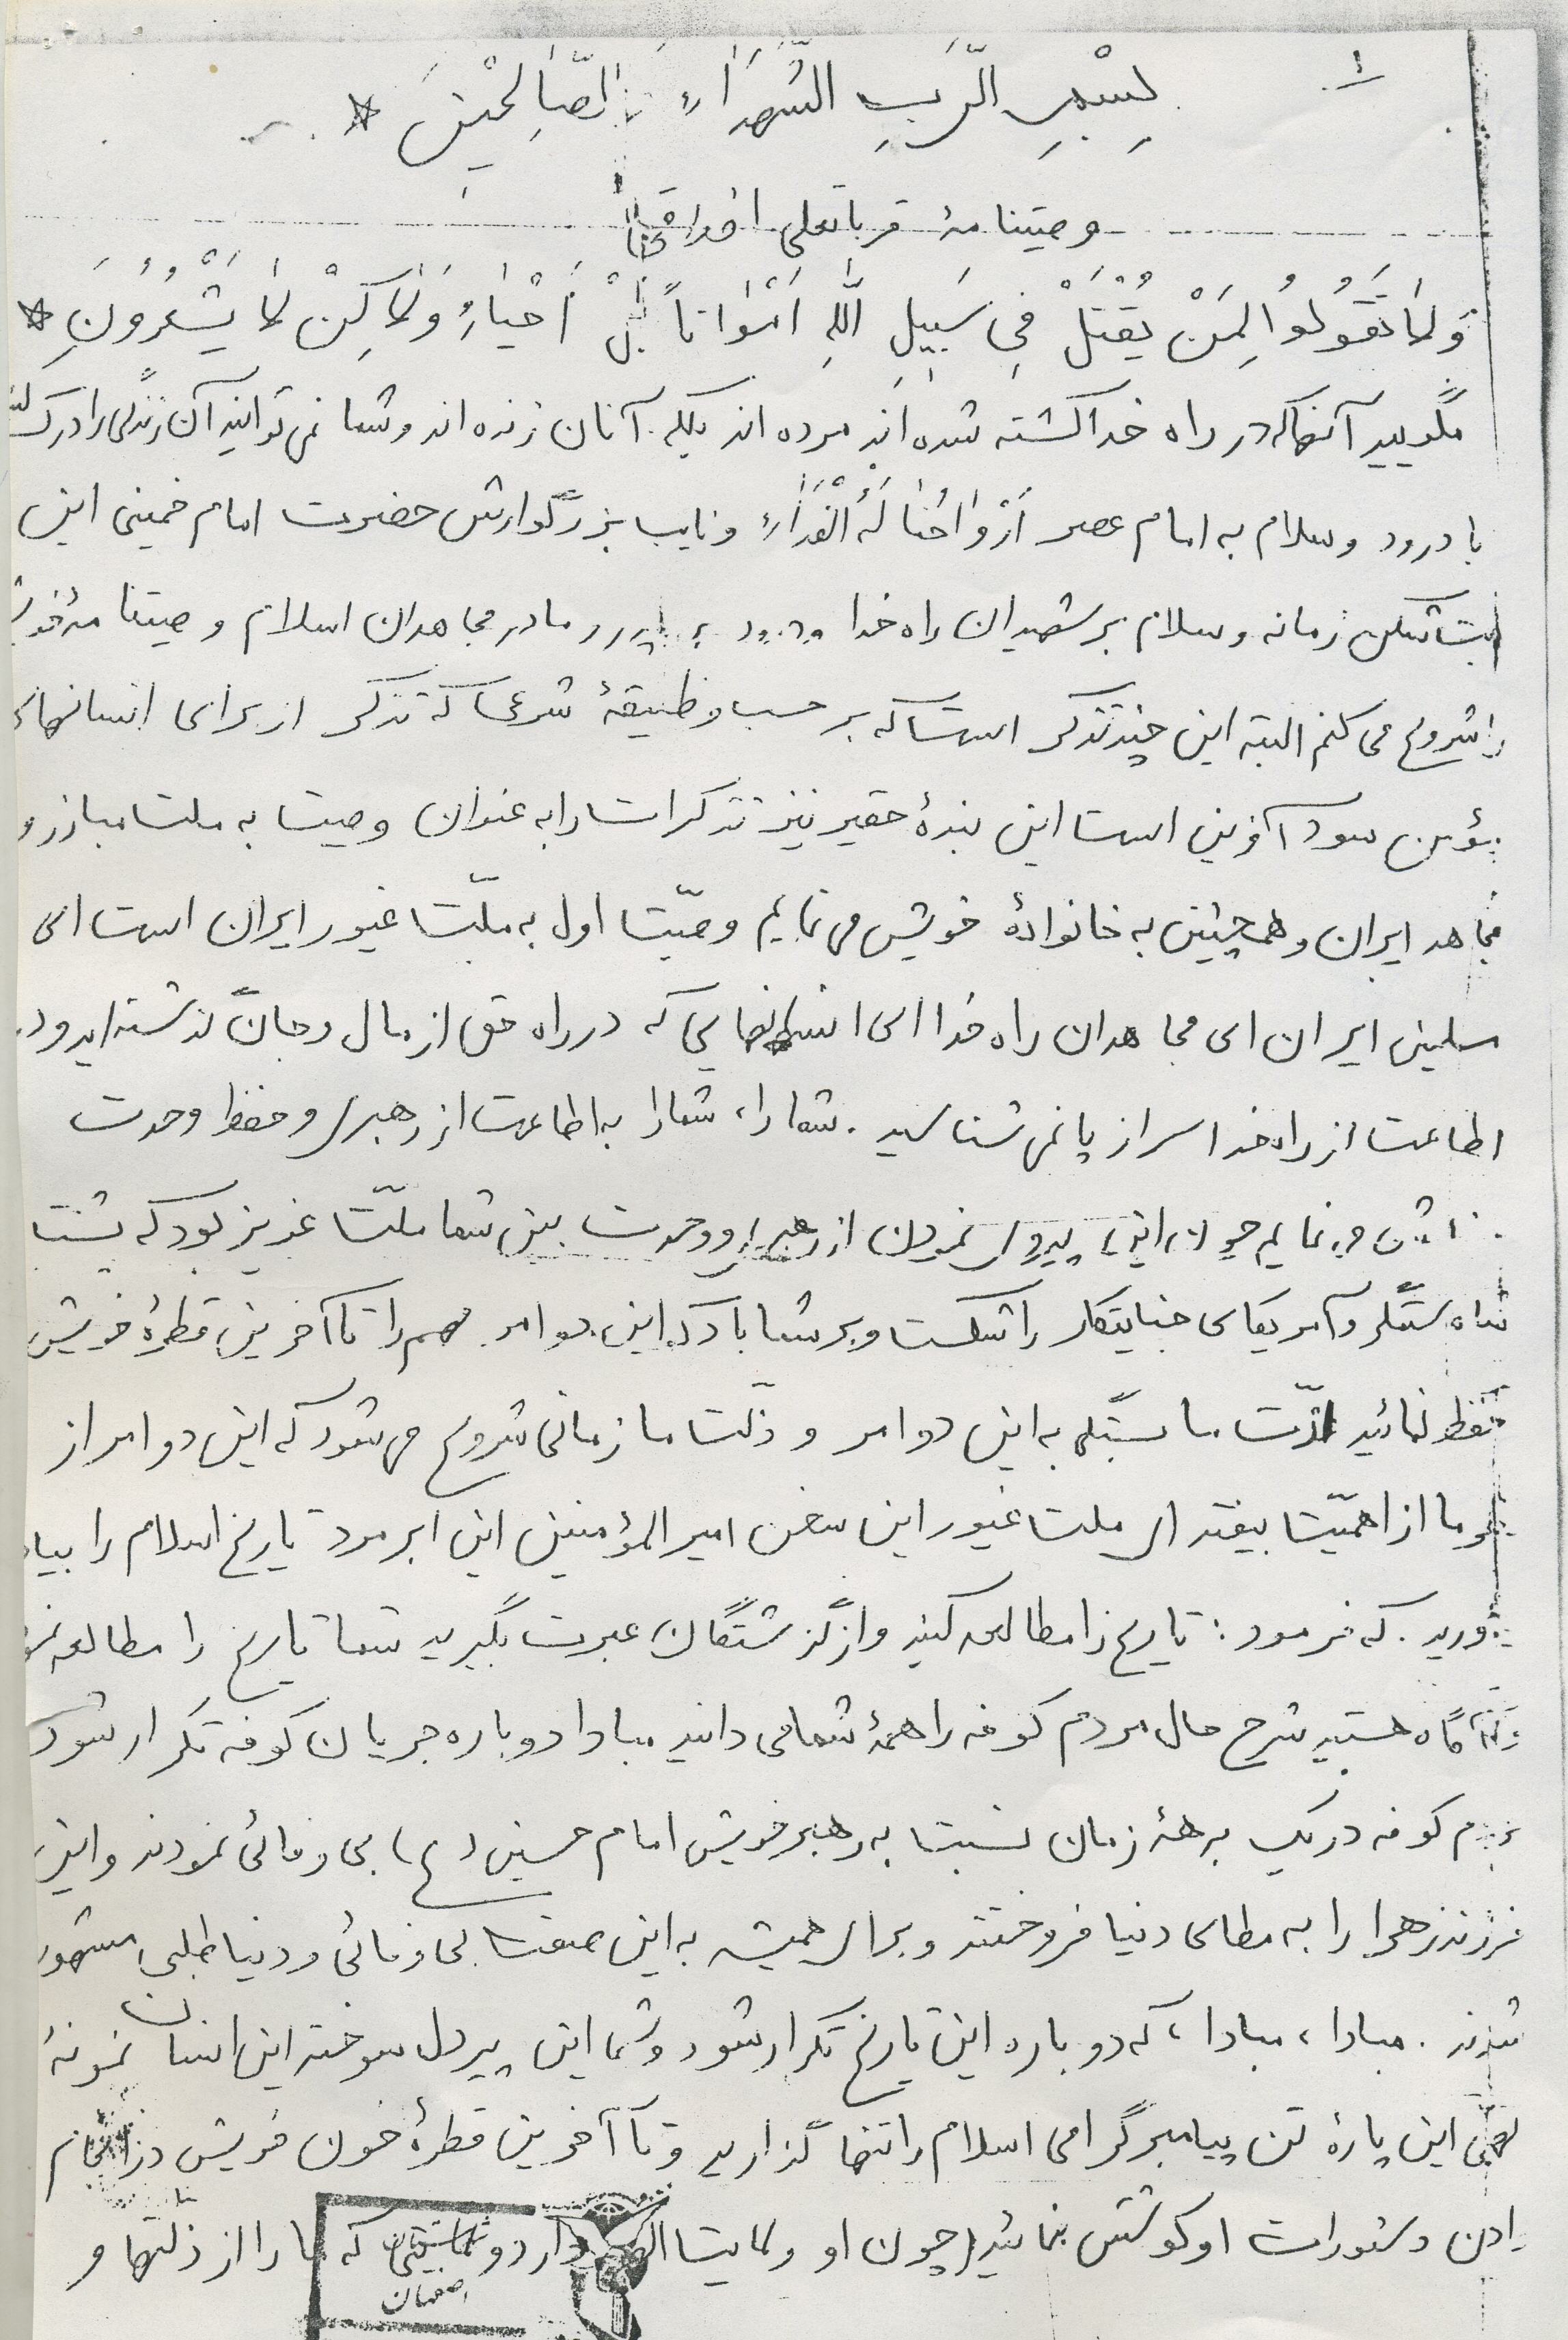 ۱
بِسْمِ الرَّبِ الشُّهَدَاءِ الصَّالِحْینَ *
وصیتنامهٔ قربانعلی
وَلَا تَقَوُلُوا لِمَنْ یُقْتَلْ فِی سَبِیلِ اللهِ اَمْوَاتاً بَلْ اَحْیَاءُ وَلَاکِنْ لَا یَشْعُرُونَ *
مگویید آنهاکه در راه خدا کشته شده اند مرده اند بلکه آنان زنده اند و شما نمی توانید آن زندگی را درک
با درود و سلام به امام عصر اَرْوَاحُنَا لَهُ الْفَدَاءِ و نایب بزرگوارش حضرت امام خمینی این
بت شکن زمانه و سلام بر شهیدان راه خدا و درود بر پدر و مادر مجاهدان اسلام وصیتنامهٔ خویش
را شروع می کنم البته این چند تذکر است که بر حسب وظیفهٔ شرعی که تذکر از برای انسانهای
مؤمن سود آفرین است این بندهٔ حقیر نیز تذکرات را به عنوان وصیت به ملت مبارز و
مجاهد ایران و همچنین به خانوادهٔ خویش می نمایم وصیّت اول به ملّت غیور ایران است ای
مسلمین ایران ای مجاهدان راه خدا ای انسانهایی که در راه حق از مال و جان گذشته اید و در
اطاعت از راه خدا سر از پا نمی شناسید . شما را، شما را به اطاعت از رهبری و حفظ وحدت
می نمایم چون این پیروی نمودن از رهبری و وحدت بین شما ملّت عزیز بود که پشت
شاه ستمگر و آمریکای جنایتکار را شکست و بر شما باد که این دو امر مهم را تا آخرین قطرهٔ خویش
حفظ نمائید عزّت ما بستگی به این دو امر و ذلّت ما زمانی شروع می شود که این دو امر از
سوی ما از اهمیّت بیفتد ای ملت غیور این سخن امیرالمؤمنین این ابر مرد تاریخ اسلام را بیاد
آورید . که فرمود : تاریخ را مطالعه کنید و از گذشتگان عبرت بگیرید شما تاریخ را مطالعه
آگاه هستید شرح حال مردم کوفه را همهٔ شما می دانید مبادا دوباره جریان کوفه تکرار شود
مردم کوفه در یک برههٔ زمان نسبت به رهبر خویش امام حسین (ع) بی وفائی نمودند و این
فرزند زهرا را به مطاعی دنیا فروختند و برای همیشه به این صفت بی وفائی و دنیا طلبی مشهور
شدند . مبادا ، مبادا ، که دوباره این تاریخ تکرار شود و شما این پیر دل سوخته این انسان نمونهٔ
الهی این پارهٔ تن پیامبر گرامی اسلام را تنها گذارید و تا آخرین قطرهٔ خون خویش در انجام
دادن دستورات او کوشش بنمائید چون او ولایت الهی دارد و که ما را از ذلتها و
اصفهان